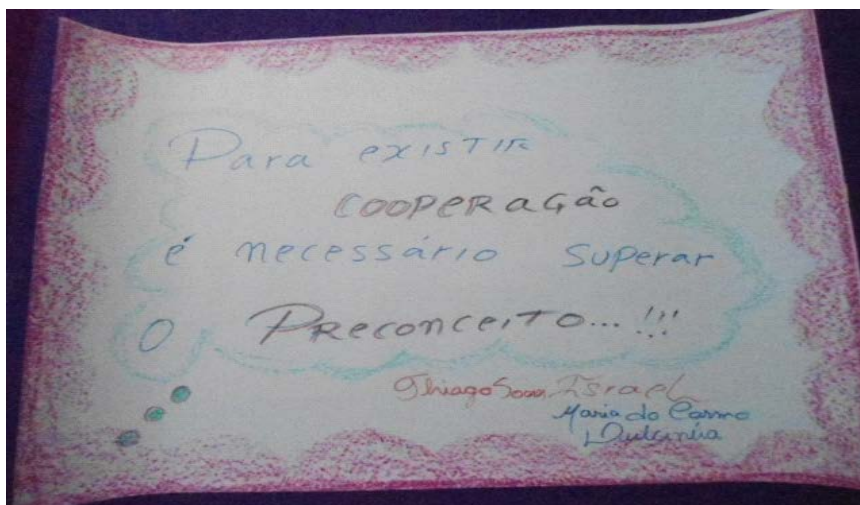 Para existir
COOPERAÇÃO
é necessário superar
O PRECONCEITO...!!!
Thiago Sousa, Israel
Maria do Carmo
Dulcinéia